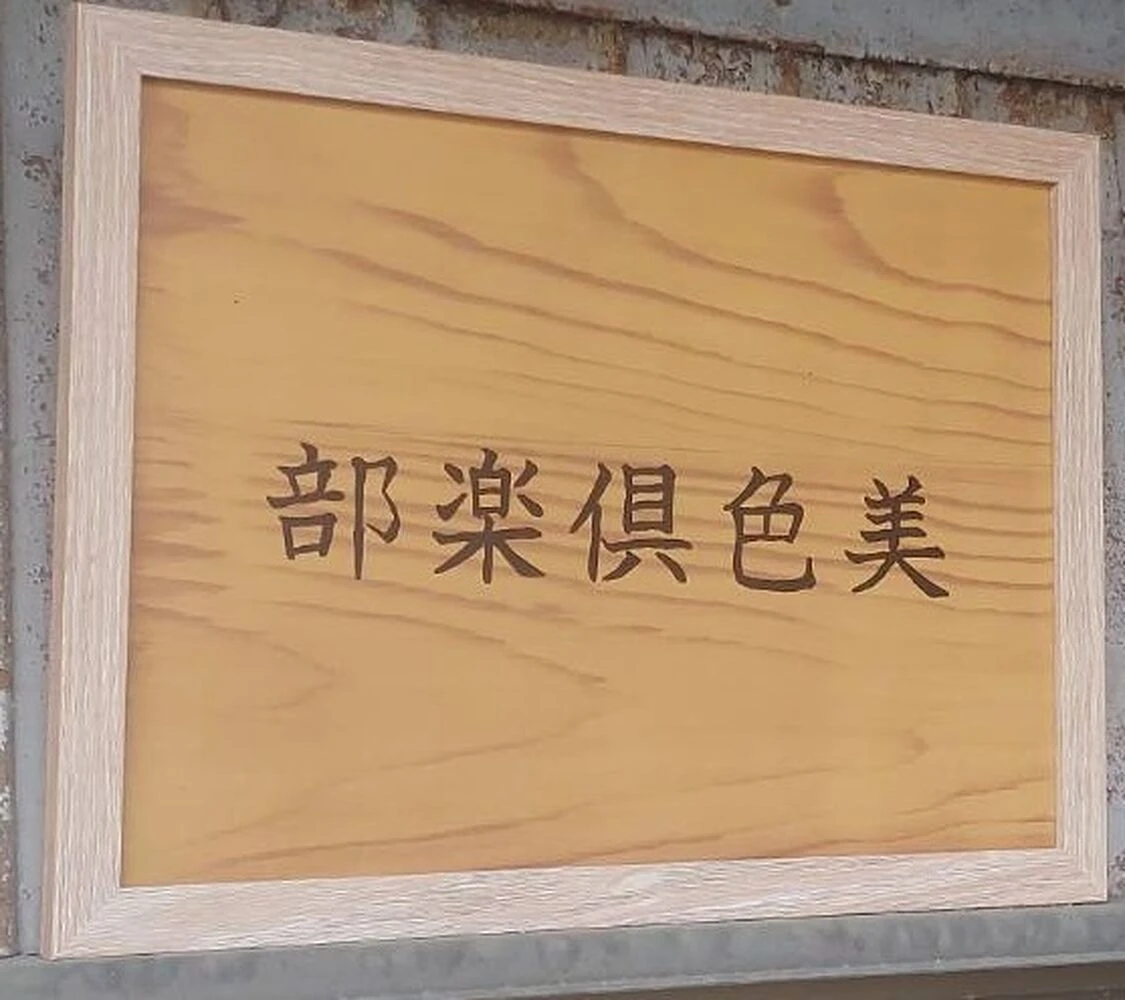 美色倶楽部